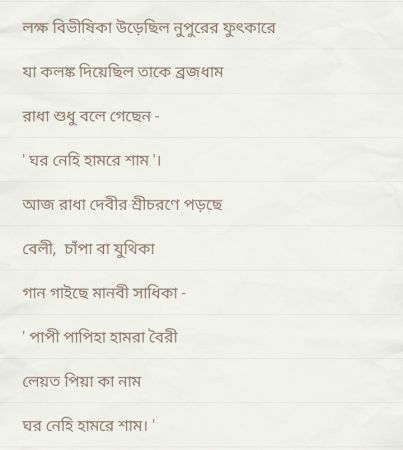 লক্ষ বিভীষিকা উড়েছিল নুপুরের ফুৎকারে
যা কলঙ্ক দিয়েছিল তাকে ব্রজধাম
রাধা শুধু বলে গেছেন -
' ঘর নেহি হামরে শাম '।
আজ রাধা দেবীর শ্রীচরণে পড়ছে
বেলী,  চাঁপা বা যুথিকা
গান গাইছে মানবী সাধিকা -
' পাপী পাপিহা হামরা বৈরী
লেয়ত পিয়া কা নাম
ঘর নেহি হামরে শাম। '